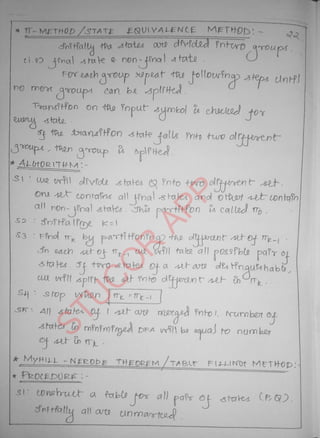 22
* π-METHOD / STATE EQUIVALENCE METHOD:-
Initially the states are divided into two groups.
(i.e) final state & non-final state.
For each group repeat the following steps until
no more groups can be splitted.
Transition on the input symbol is checked for
every state.
If the transition state falls into two different
groups, then group is splitted.
* ALGORITHM:-
S1: We will divide states Q into two different set.
One set contains all final states and other set contain
all non-final states. This partition is called π0.
S2: Initialize K=1
S3: Find πk by partitioning the different set of πk-1.
In each set of πk-1 we will take all possible pair of
states. If two states of a set are distinguishable,
we will split the set into different set in πk.
S4: Stop when πk = πk-1
S5: All states of 1 set are merged into 1. Number of
states in minimized DFA will be equal to number
of set in πk.
* MYHILL-NERODE THEOREM / TABLE FILLING METHOD:-
* PROCEDURE:-
S1: Construct a table for all pair of states (P,Q).
Initially all are unmarked
STUCOR APP